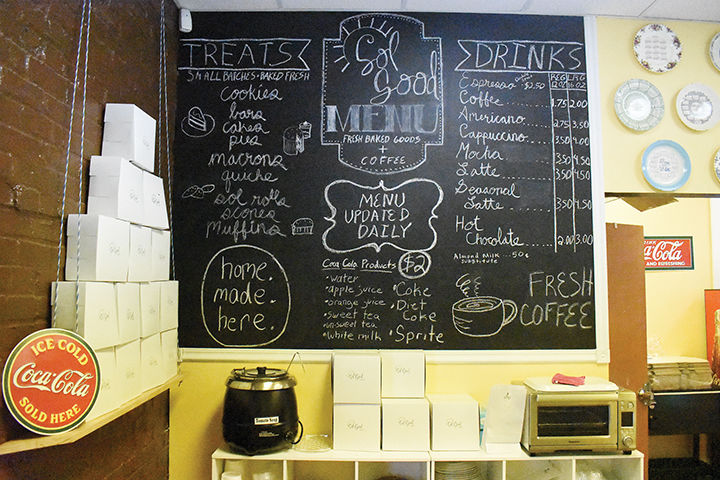 TREATS
SMALL BATCHES • BAKED FRESH
cookies
bars
cakes
pies
macrons
quiche
sol rolls
scones
muffins
home.
made.
here.
Sol
Good
MENU
FRESH BAKED GOODS
+
COFFEE
MENU
UPDATED
DAILY
Coca Cola Products $2
• water
• apple juice
• orange juice
• sweet tea
• unsweet tea
• white milk
• Coke
• Diet
Coke
• Sprite
DRINKS
REG LRG
12 oz 16 oz
Espresso $2.50
Coffee 1.75 2.00
Americano 2.75 3.50
Cappuccino 3.50 4.00
Mocha 3.50 4.50
Latte 3.50 4.50
Seasonal
Latte 3.50 4.50
Hot
Chocolate 2.00 3.00
Almond Milk .50¢
Substitute
FRESH
COFFEE
ICE COLD
Coca-Cola
SOLD HERE
Tomato Soup
DRINK
Coca-Cola
AND REFRESHING